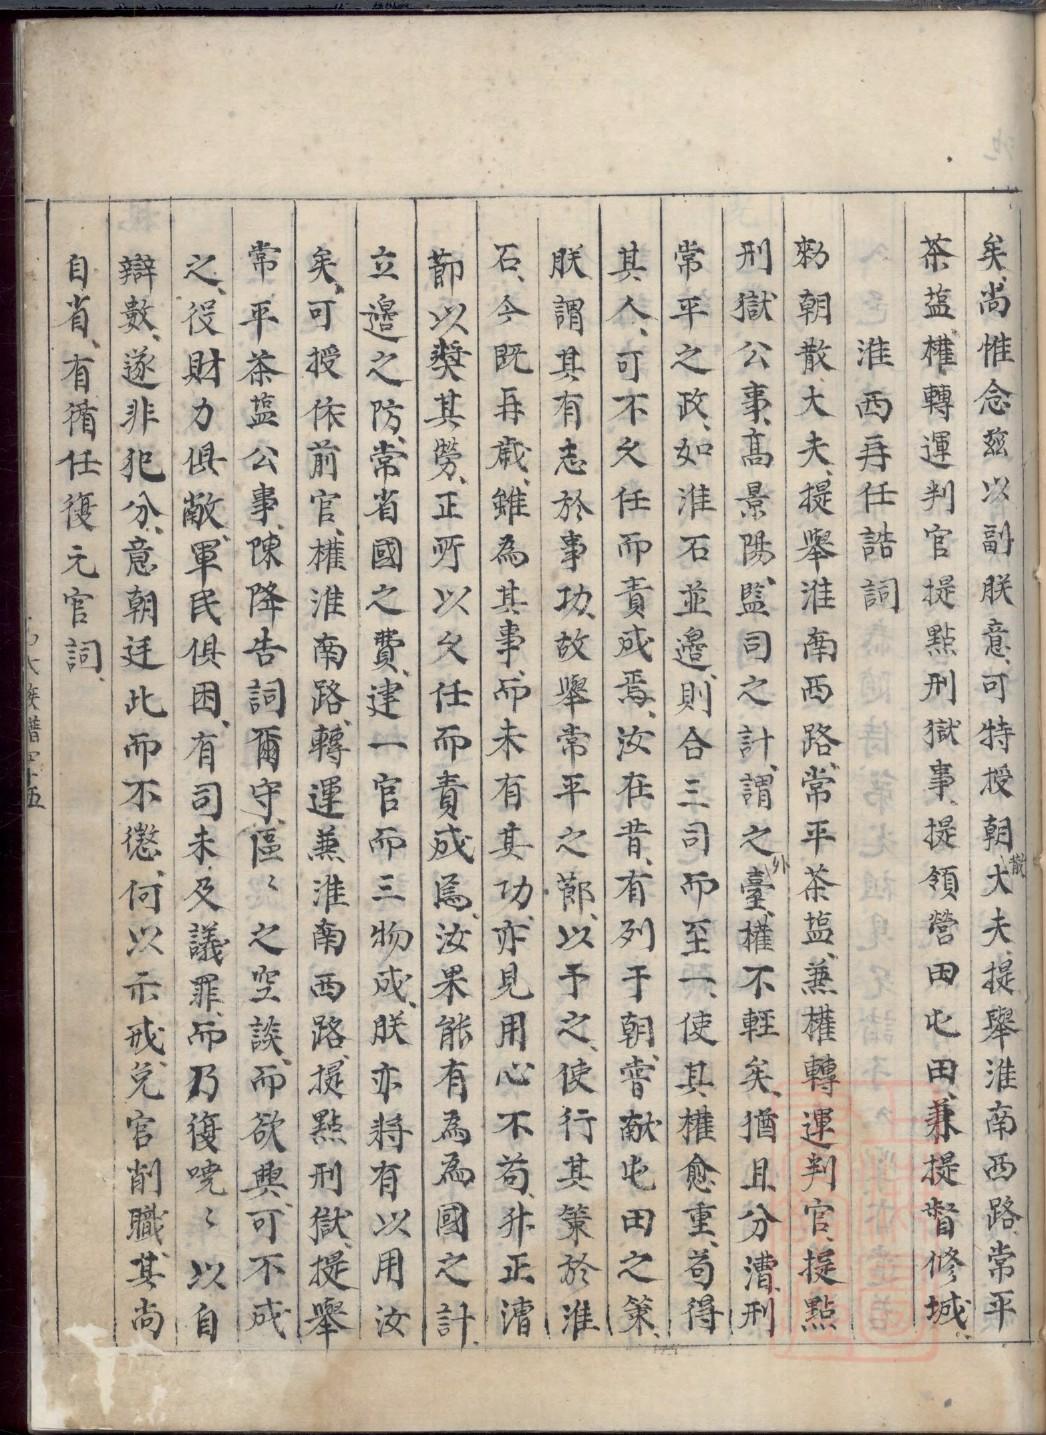 矣、尚惟念茲以副朕意、可特授朝散大夫、提舉淮南西路、常平
茶塩、權轉運判官、提點刑獄事、提領營田屯田、兼提督修城、
淮西再任誥詞
勑朝散大夫、提舉淮南西路、常平茶塩、兼權轉運判官、提點
刑獄公事、高景陽、監司之計、謂之外臺、權不輕矣、猶且分漕刑
常平之政、如淮右並邉、則合三司而至一、使其權愈重、苟得
其人、可不久任而責成焉、汝在昔、有列于朝、嘗献屯田之策、
朕謂其有志於事功、故舉常平之節、以予之、使行其策於淮
石、今既再歲、雖為其事、而未有其功、亦見用心不苟、升正漕
節以奬其勞、正所以久任而責成焉、汝果能有為為國之計、
立邉之防、常省國之費、建一官而三物成、朕亦将有以用汝
矣、可授依前官、權淮南路、轉運兼淮南西路、提點刑獄、提舉
常平茶塩公事、陳降告詞爾守、區〻之空談、而欲興、可不成
之、役財力俱敝、軍民俱困、有司未及議罪、而乃復嘵〻以自
辯數、遂非犯分、意朝廷此而不懲、何以示戒、兌官削職、其尚
自省、有循任復元官詞、